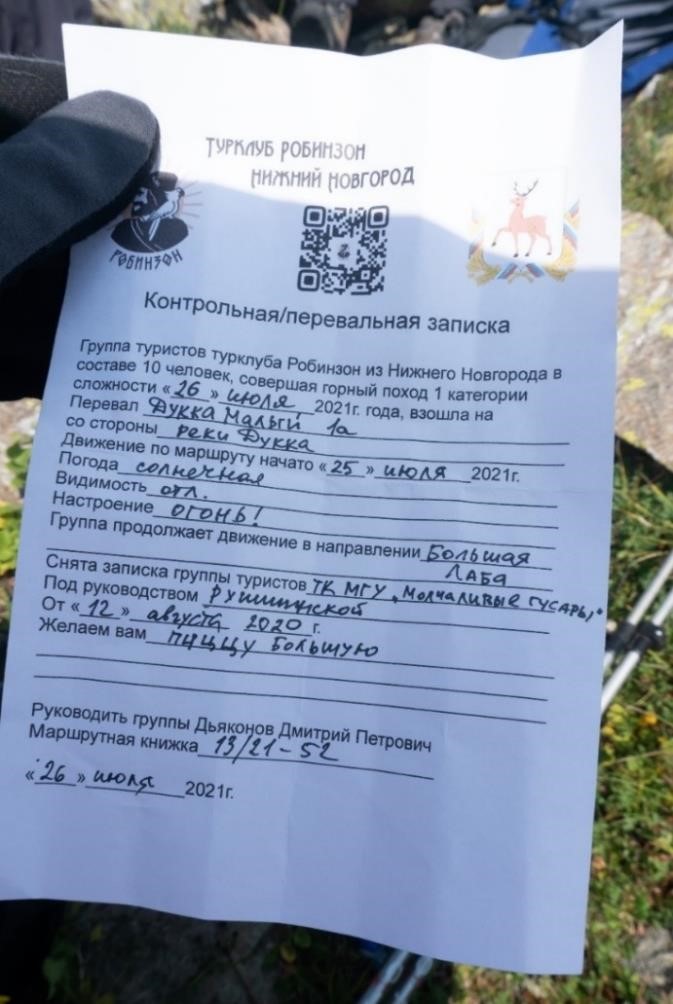 ТУРКЛУБ РОБИНЗОН
НИЖНИЙ НОВГОРОД
РОБИНЗОН
Контрольная/перевальная записка
Группа туристов турклуба Робинзон из Нижнего Новгорода в
составе 10 человек, совершая горный поход 1 категории
сложности «26» июля, 2021г. года, взошла на
Перевал Дукка Малый 1а
со стороны реки Дукка
Движение по маршруту начато «25» июля 2021г.
Погода солнечная
Видимость отл.
Настроение ОГОНЬ!
Группа продолжает движение в направлении Большая
Лаба
Снята записка группы туристов ТК МГУ „Молчаливые гусары"
Под руководством
От «12» августа 2020 г.
Желаем вам пиццу большую
Руководить группы Дьяконов Дмитрий Петрович
Маршрутная книжка 13/21-52
«26» июля 2021г.